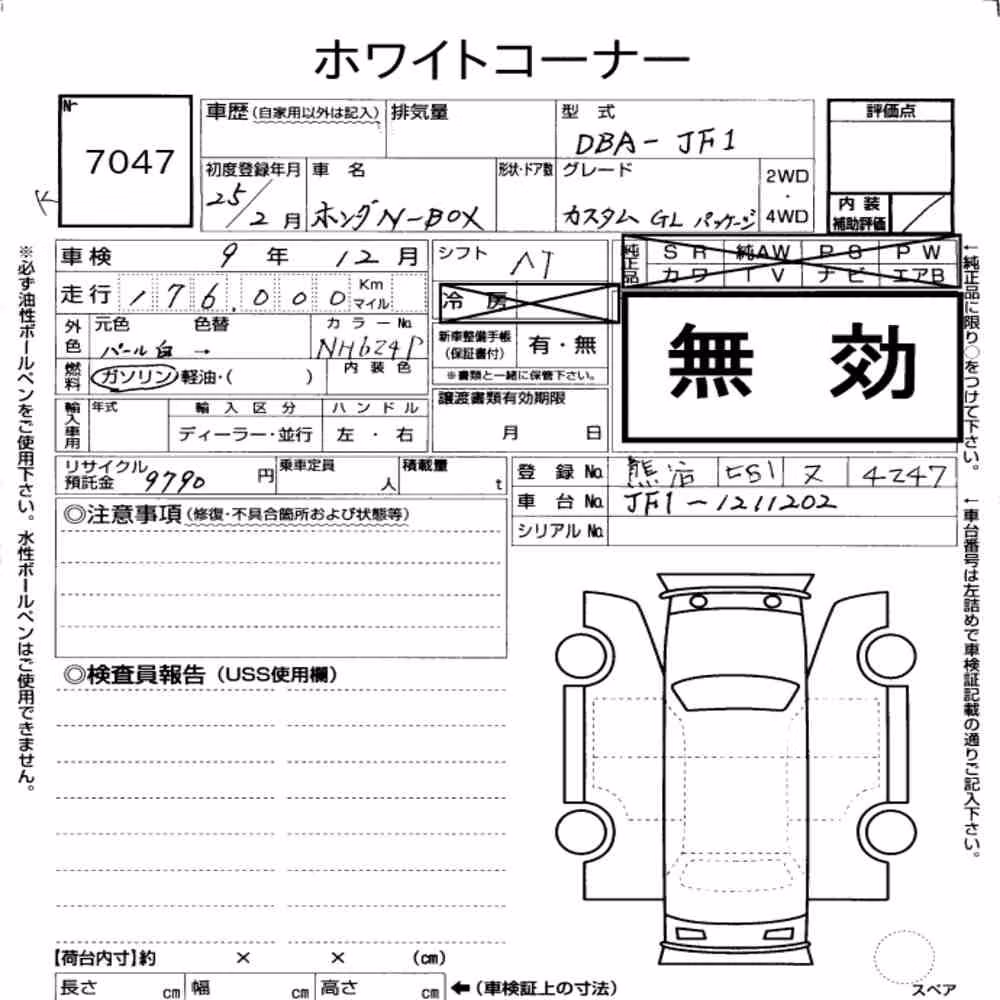 ホワイトコーナー
No.
7047
車歴(自家用以外は記入) 排気量 型式 評価点
DBA-JF1
初度登録年月 車名 形状・ドア数 グレード 2WD・4WD
25/2月 ホンダN-BOX カスタム GL パッケージ
内装補助評価
車検 9年12月 シフト AT
純正品 SR 純AW PS PW
カワ TV ナビ エアB
走行 176,000 Km マイル
冷房
無効
外色 元色 色替 カラーNo.
パール白 → NH624P
新車整備手帳(保証書付) 有・無
※書類と一緒に保管下さい。
燃料 ガソリン・軽油・( ) 内装色
輸入車用 年式 輸入区分 ハンドル
ディーラー・並行 左・右
譲渡書類有効期限
月 日
リサイクル預託金 9790円 乗車定員 人 積載量 t
登録No. 熊谷 581 ヌ 4247
車台No. JF1-1211202
シリアルNo.
◎注意事項(修復・不具合箇所および状態等)
◎検査員報告(USS使用欄)
【荷台内寸】約 × × (cm)
長さ cm 幅 cm 高さ cm ←(車検証上の寸法)
スペア
※必ず油性ボールペンをご使用下さい。水性ボールペンはご使用できません。
←純正品に限り○をつけて下さい。
←車台番号は左詰めで車検証記載の通りご記入下さい。